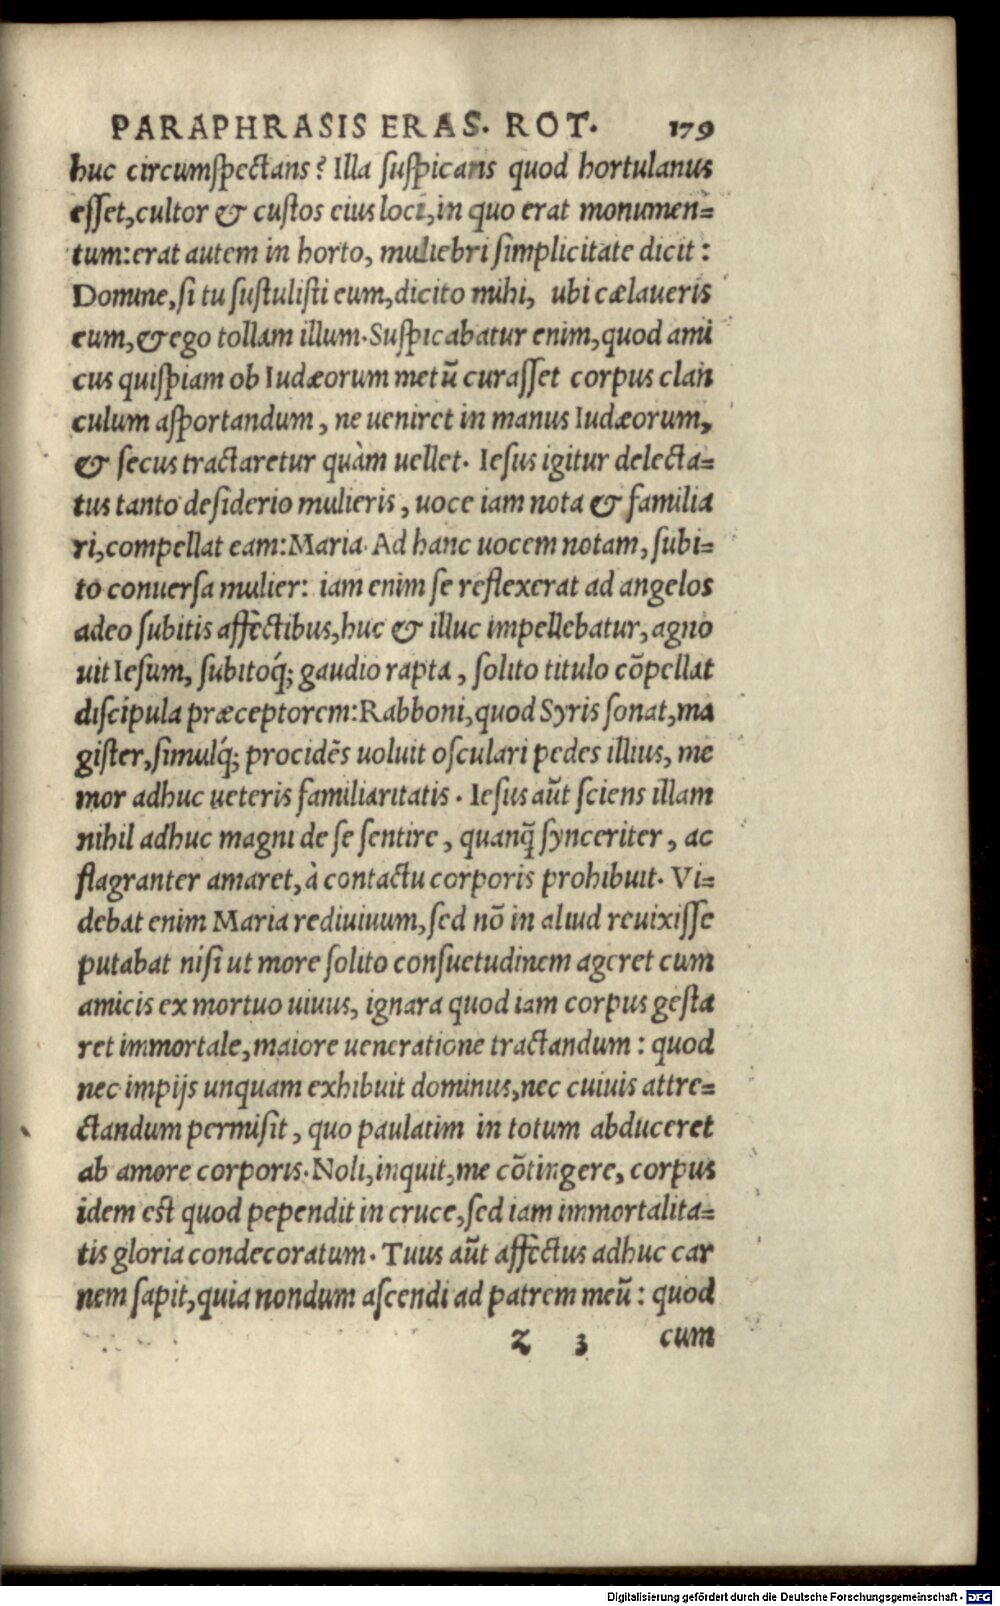 PARAPHRASIS ERAS. ROT. 179
huc circumſpectans? Illa ſuſpicans quod hortulanus
eſſet, cultor & cuſtos eius loci, in quo erat monumen=
tum: erat autem in horto, muliebri ſimplicitate dicit:
Domine, ſi tu ſuſtuliſti eum, dicito mihi, ubi cælaueris
eum, & ego tollam illum. Suſpicabatur enim, quod ami
cus quiſpiam ob Iudæorum metū curaſſet corpus clan
culum aſportandum, ne ueniret in manus Iudæorum,
& ſecus tractaretur quàm uellet. Ieſus igitur delecta=
tus tanto deſiderio mulieris, uoce iam nota & familia
ri, compellat eam: Maria. Ad hanc uocem notam, ſubi=
to conuerſa mulier: iam enim ſe reflexerat ad angelos
adeo ſubitis affectibus, huc & illuc impellebatur, agno
uit Ieſum, ſubitoq́; gaudio rapta, ſolito titulo cōpellat
diſcipula præceptorem: Rabboni, quod Syris ſonat, ma
giſter, ſimulq́; procidēs uoluit oſculari pedes illius, me
mor adhuc ueteris familiaritatis. Ieſus aūt ſciens illam
nihil adhuc magni de ſe ſentire, quanq̄ ſynceriter, ac
flagranter amaret, à contactu corporis prohibuit. Vi=
debat enim Maria rediuiuum, ſed nō in aliud reuixiſſe
putabat niſi ut more ſolito conſuetudinem ageret cum
amicis ex mortuo uiuus, ignara quod iam corpus geſta
ret immortale, maiore ueneratione tractandum: quod
nec impijs unquam exhibuit dominus, nec cuiuis attre=
ctandum permiſit, quo paulatim in totum abduceret
ab amore corporis. Noli, inquit, me cōtingere, corpus
idem eſt quod pependit in cruce, ſed iam immortalita=
tis gloria condecoratum. Tuus aūt affectus adhuc car
nem ſapit, quia nondum aſcendi ad patrem meū: quod
z 3 cum
Digitalisierung gefördert durch die Deutsche Forschungsgemeinschaft - DFG